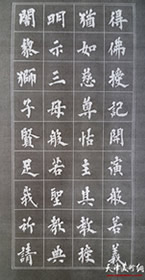 得佛授記開演般若義
猶如慈尊怙主其教授
明示三母般若聖教典
闍黎獅子賢足我祈請
天津美术网